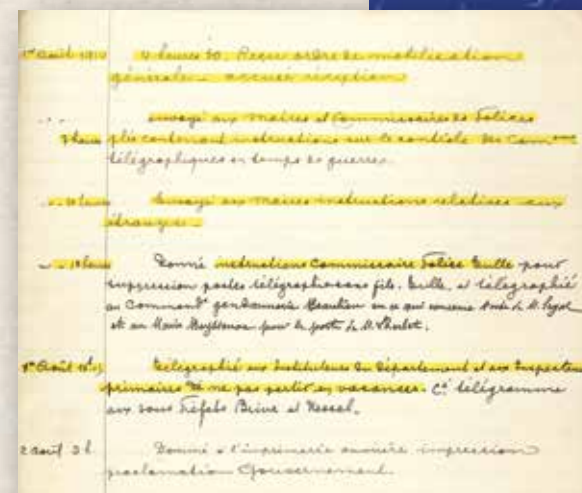 1er août 1914 4 heures 30, Reçu ordre de mobilisation
générale - accusé réception
envoyé aux maires et Commissaires de Polices
9 heures plis contenant instructions sur le contrôle des Comm
télégraphiques en temps de guerres.
10 heures Envoyé aux maires instructions relatives aux
étrangers.
Donné instructions Commissaire Police Tulle pour
suppression postes télégraphie sans fils. Tulle, et télégraphié
au Commandt gendarmerie en ce qui concerne de M.
et au Maire pour le poste de M.
1er Août Télégraphié aux Instituteurs du Département et aux Inspecteurs
primaires de ne pas partir en vacances. Ce télégramme
aux sous Préfets Brive et Ussel.
2 août 3h Donné à l'imprimerie ouvrière impression
proclamation Gouvernement.